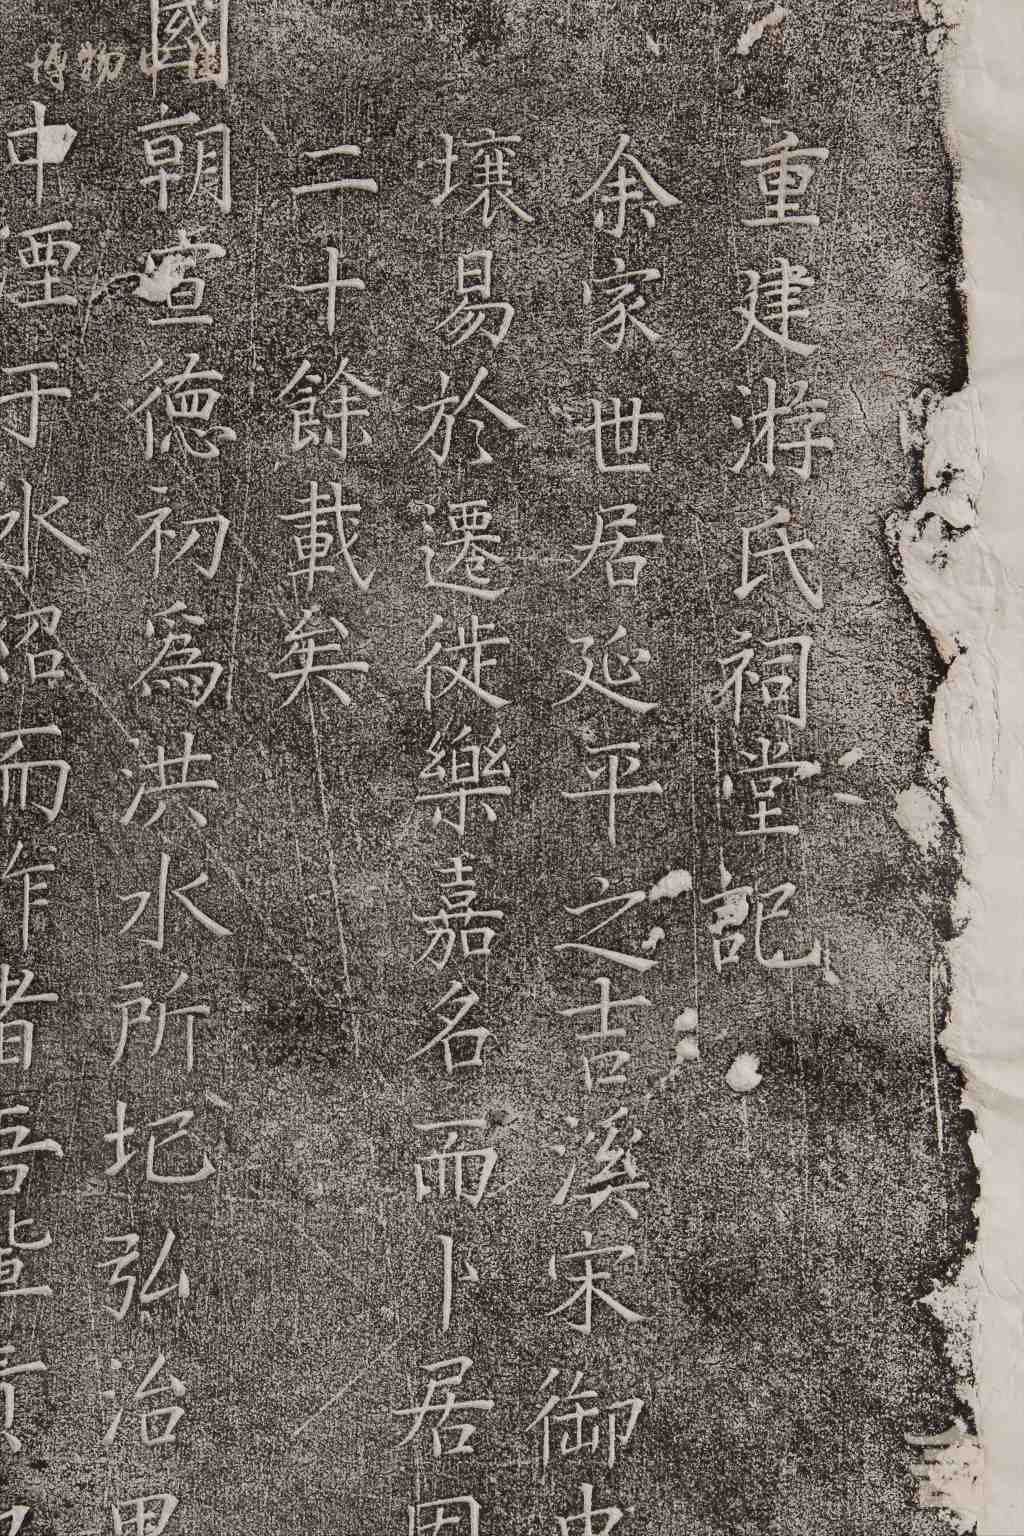 重建游氏祠堂記
余家世居延平之吉溪宋御史
壤易於遷徙樂嘉名而卜居因
二十餘載矣
國朝宣德初為洪水所圮弘治甲
中湮于水紹而作者吾輩責
博物中国